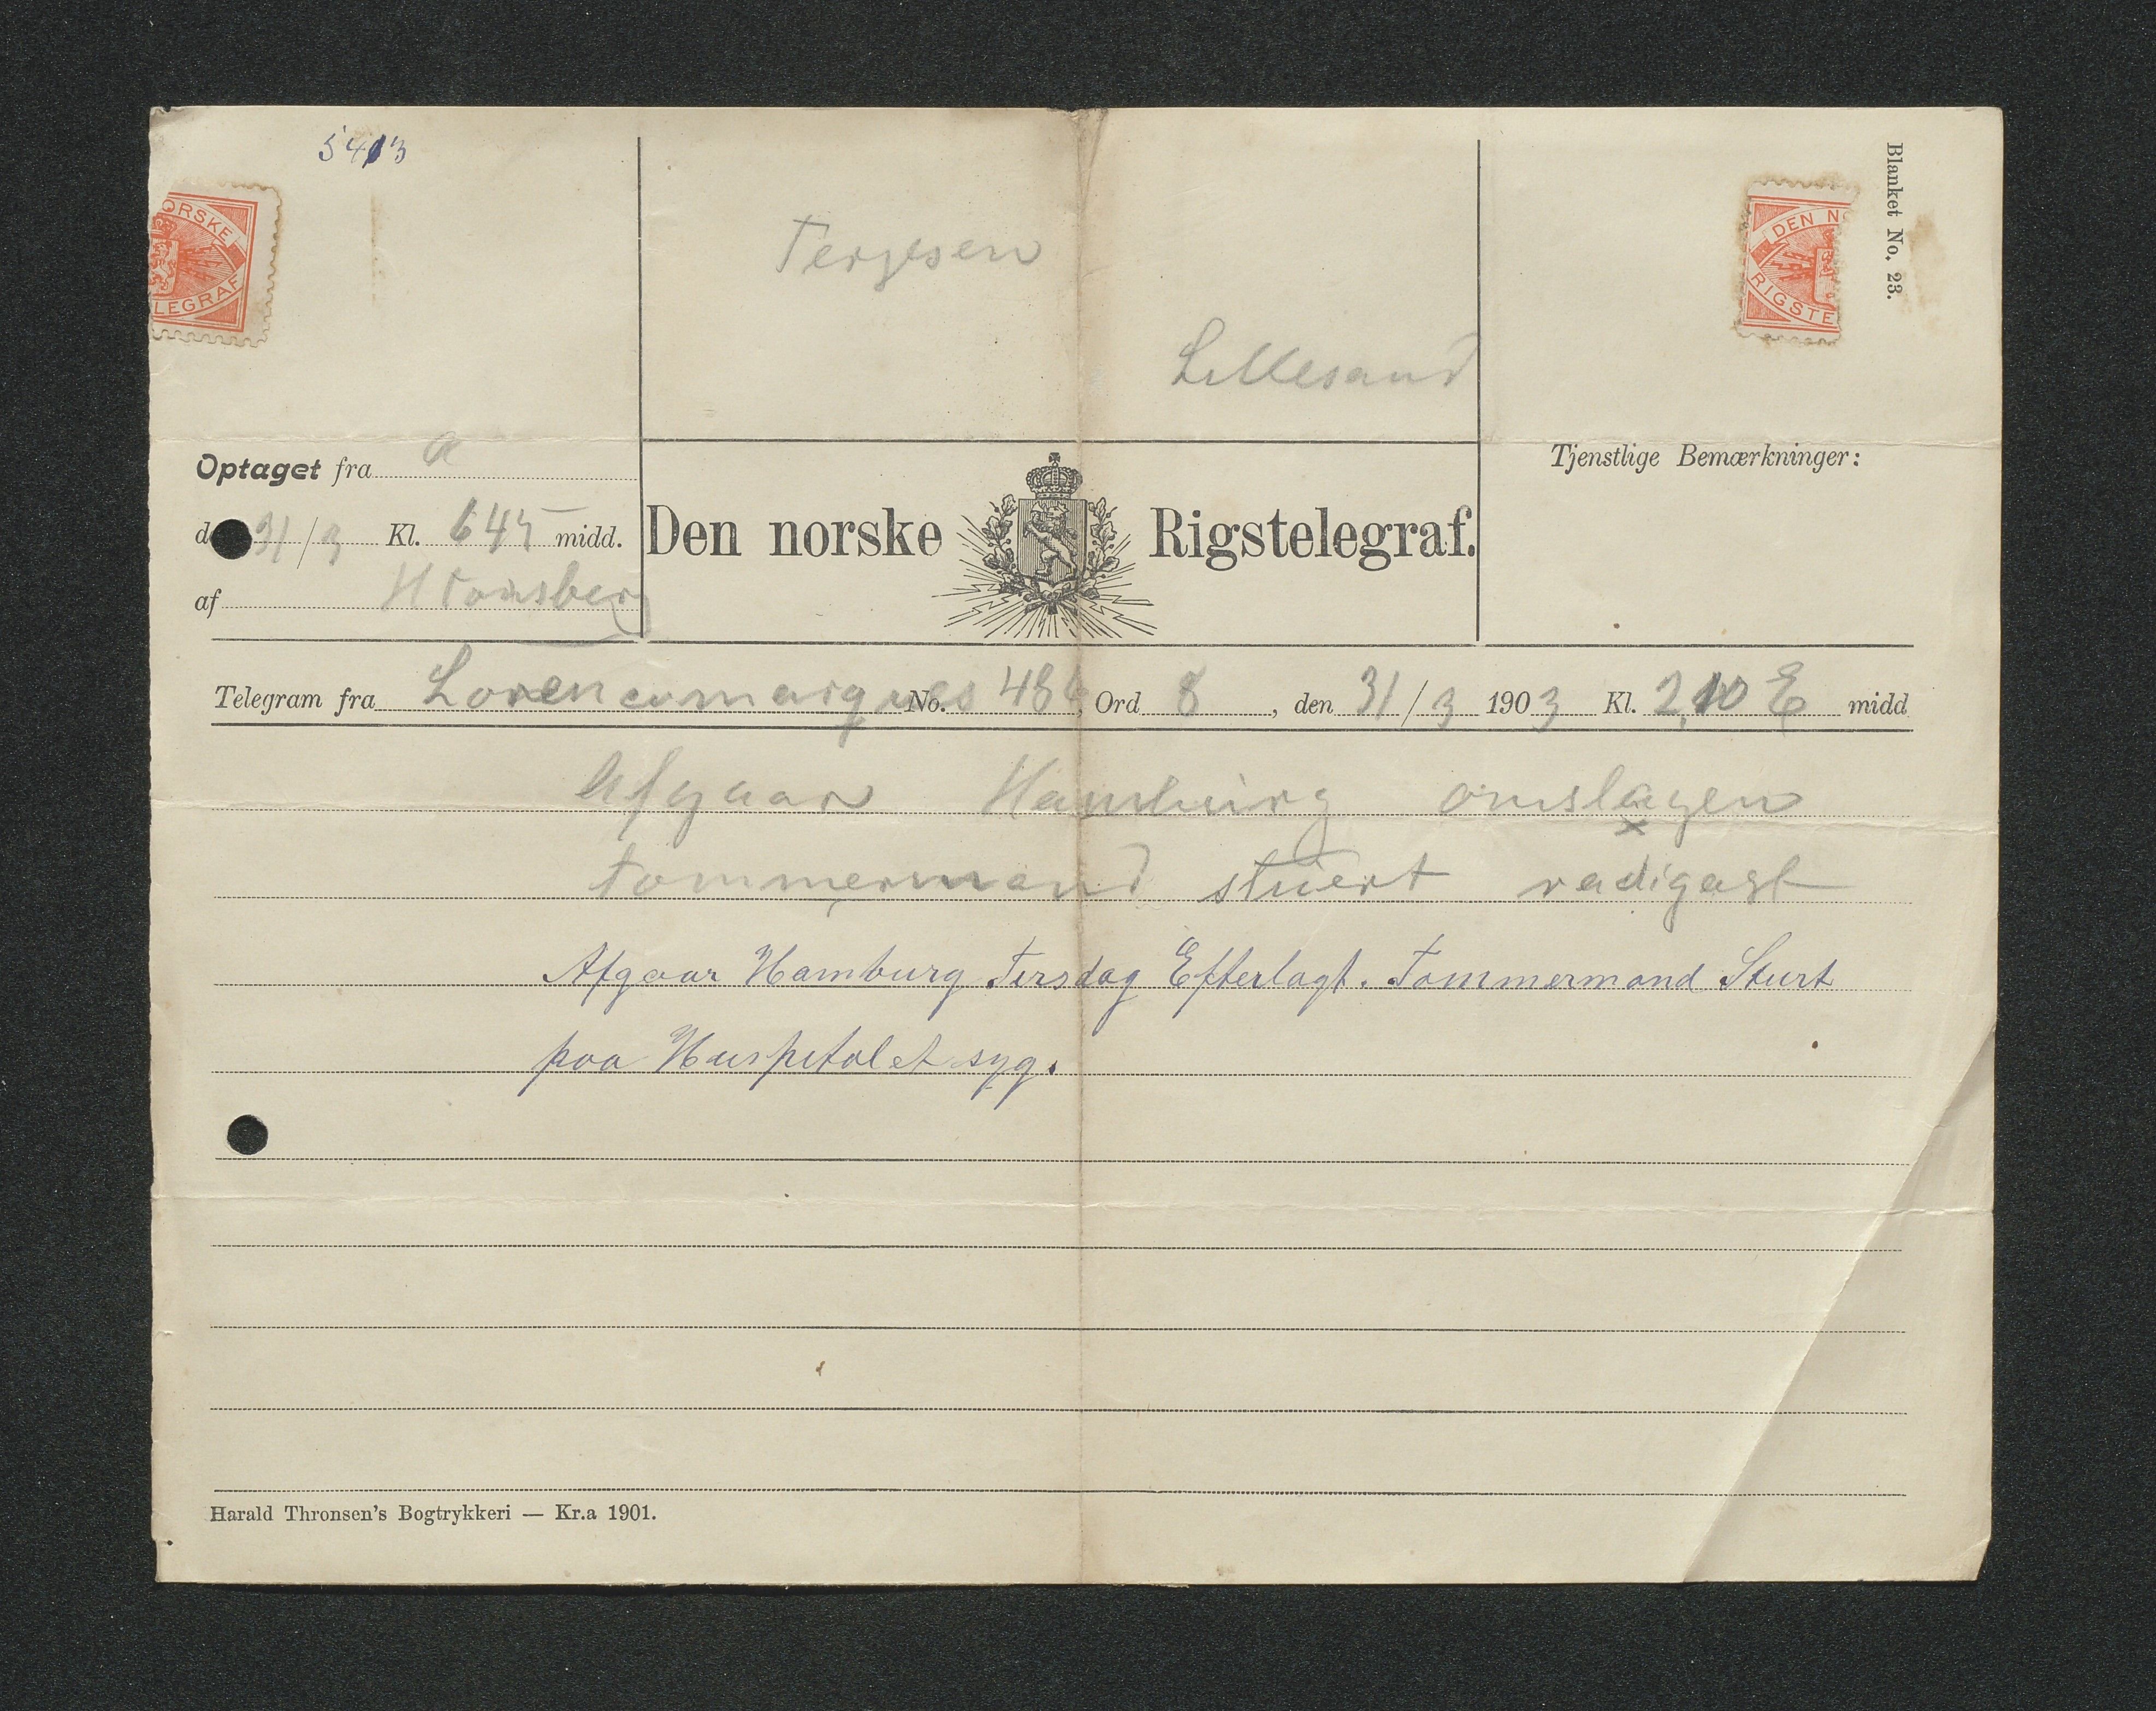 5413
ORSKE
LEGRAF
Tergesen
Lillesand
DEN NO
RIGSTE
Blanket No. 23.
Optaget fra a
31/3 Kl. 645 midd.
af H Tonsberg
Den norske Rigstelegraf.
Tjenstlige Bemærkninger:
Telegram fra Lorencomarques No. 486 Ord 8, den 31/3 1903 Kl. 2,10 E midd
Afgaar Hamburg omslagen
tommermand stuert radigast
Afgaar Hamburg Tirsdag Efterlagt. Tommermand Sturt
paa Huspitalet syg.
Harald Thronsen's Bogtrykkeri — Kr.a 1901.